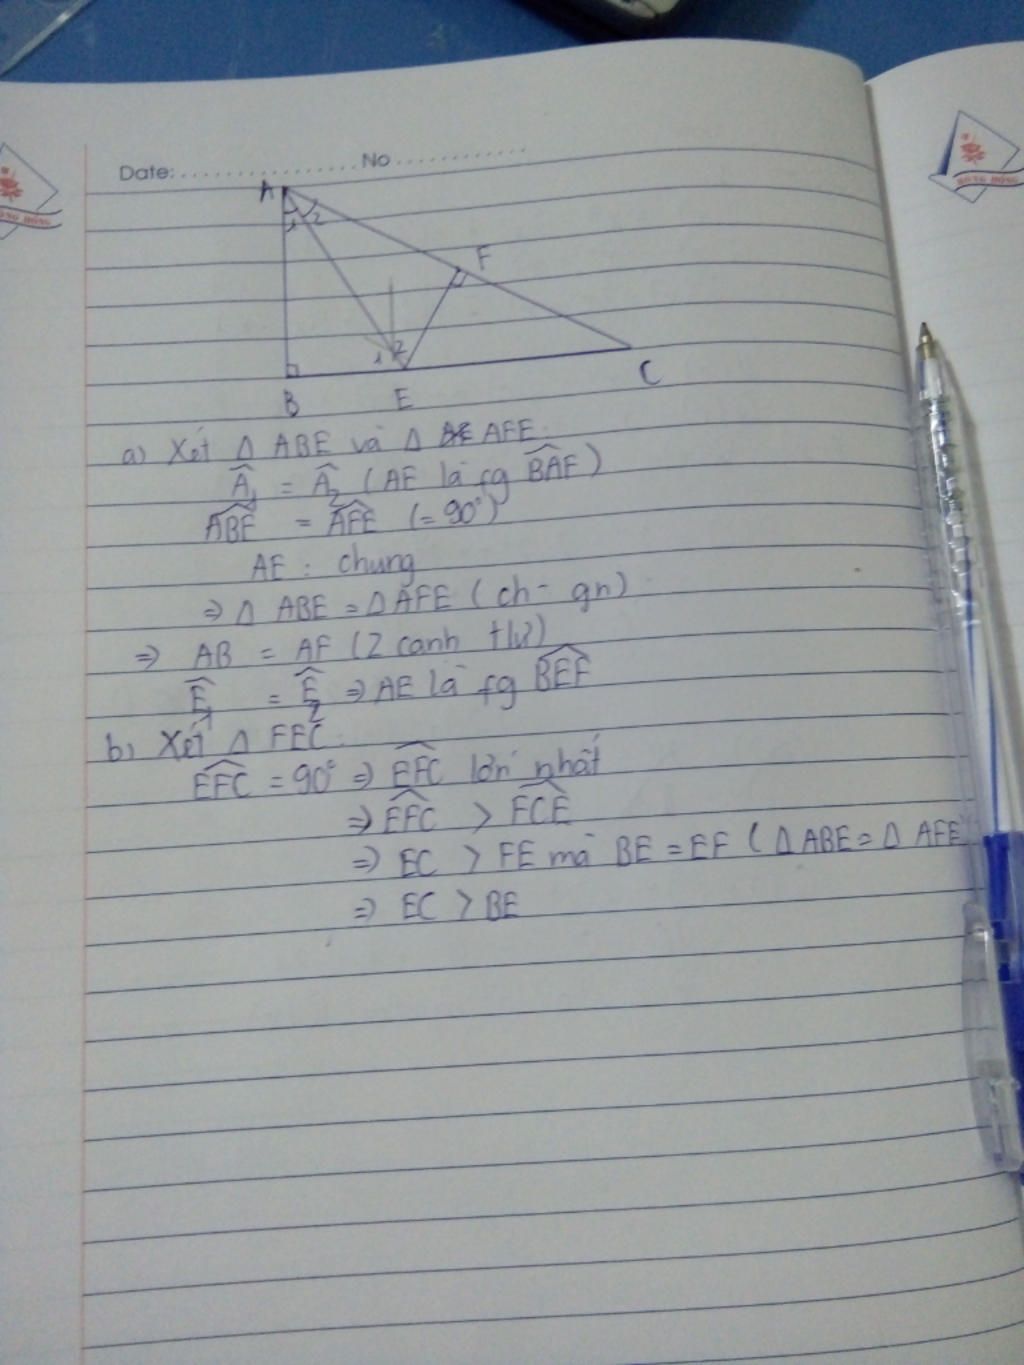 Date: .................. No ..............
A
1 2
F
1 2
B E C
a) Xét Δ ABE và Δ AFE.
Â₁ = Â₂ (AE là fg \widehat{BAF})
\widehat{ABE} = \widehat{AFE} (= 90°)
AE : chung
⇒ Δ ABE = Δ AFE (ch - gn)
⇒ AB = AF (2 cạnh tlư)
Ê₁ = Ê₂ ⇒ AE là fg \widehat{BEF}
b) Xét Δ FEC:
\widehat{EFC} = 90° ⇒ \widehat{EFC} lớn nhất
⇒ \widehat{EFC} > \widehat{FCE}
⇒ EC > FE mà BE = EF (Δ ABE = Δ AFE)
⇒ EC > BE
HỒNG HÔNG